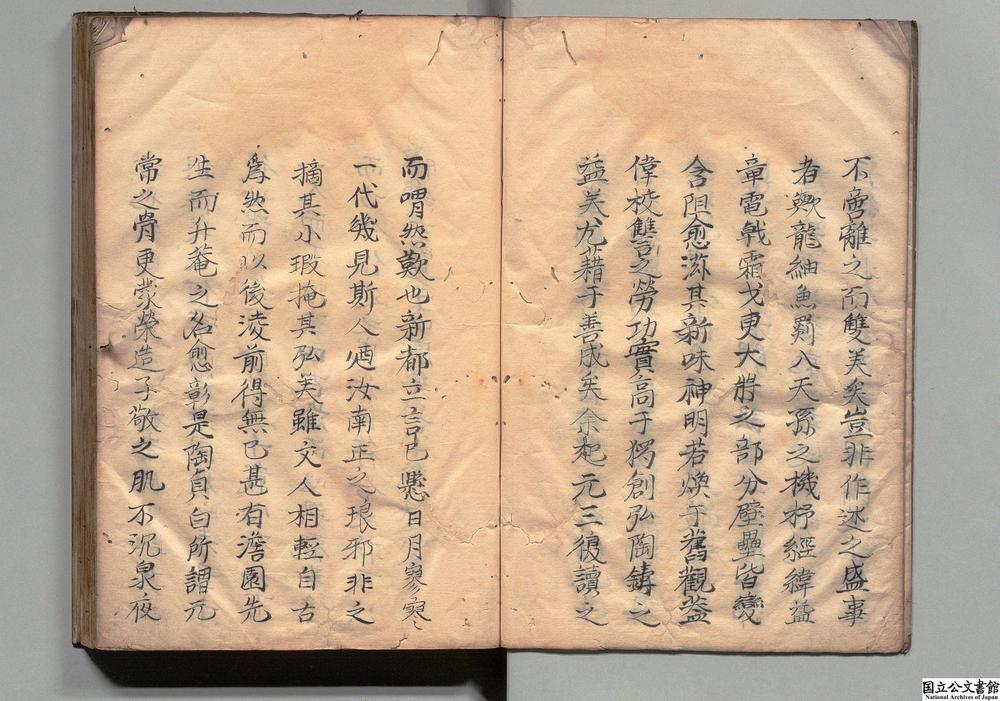 不啻離之而雙美矣豈非作述之盛事
者歟龍紬魚罽入天孫之機杼經緯益
章電戟霜戈更大將之部分壁壘皆變
含咀愈滋其新味神明若煥于舊觀蓋
偉校讐之勞功實高于獨創弘陶鑄之
益美尤藉于善成矣余起元三復讀之
而喟然歎也新都立言已懸日月寥寥
一代幾見斯人迺汝南正之琅邪非之
摘其小瑕掩其弘美雖文人相輕自古
爲然而以後淩前得無已甚有澹園先
生而升菴之名愈彰是陶貞白所謂元
常之骨更蒙榮造子敬之肌不沉泉夜
国立公文書館
National Archives of Japan